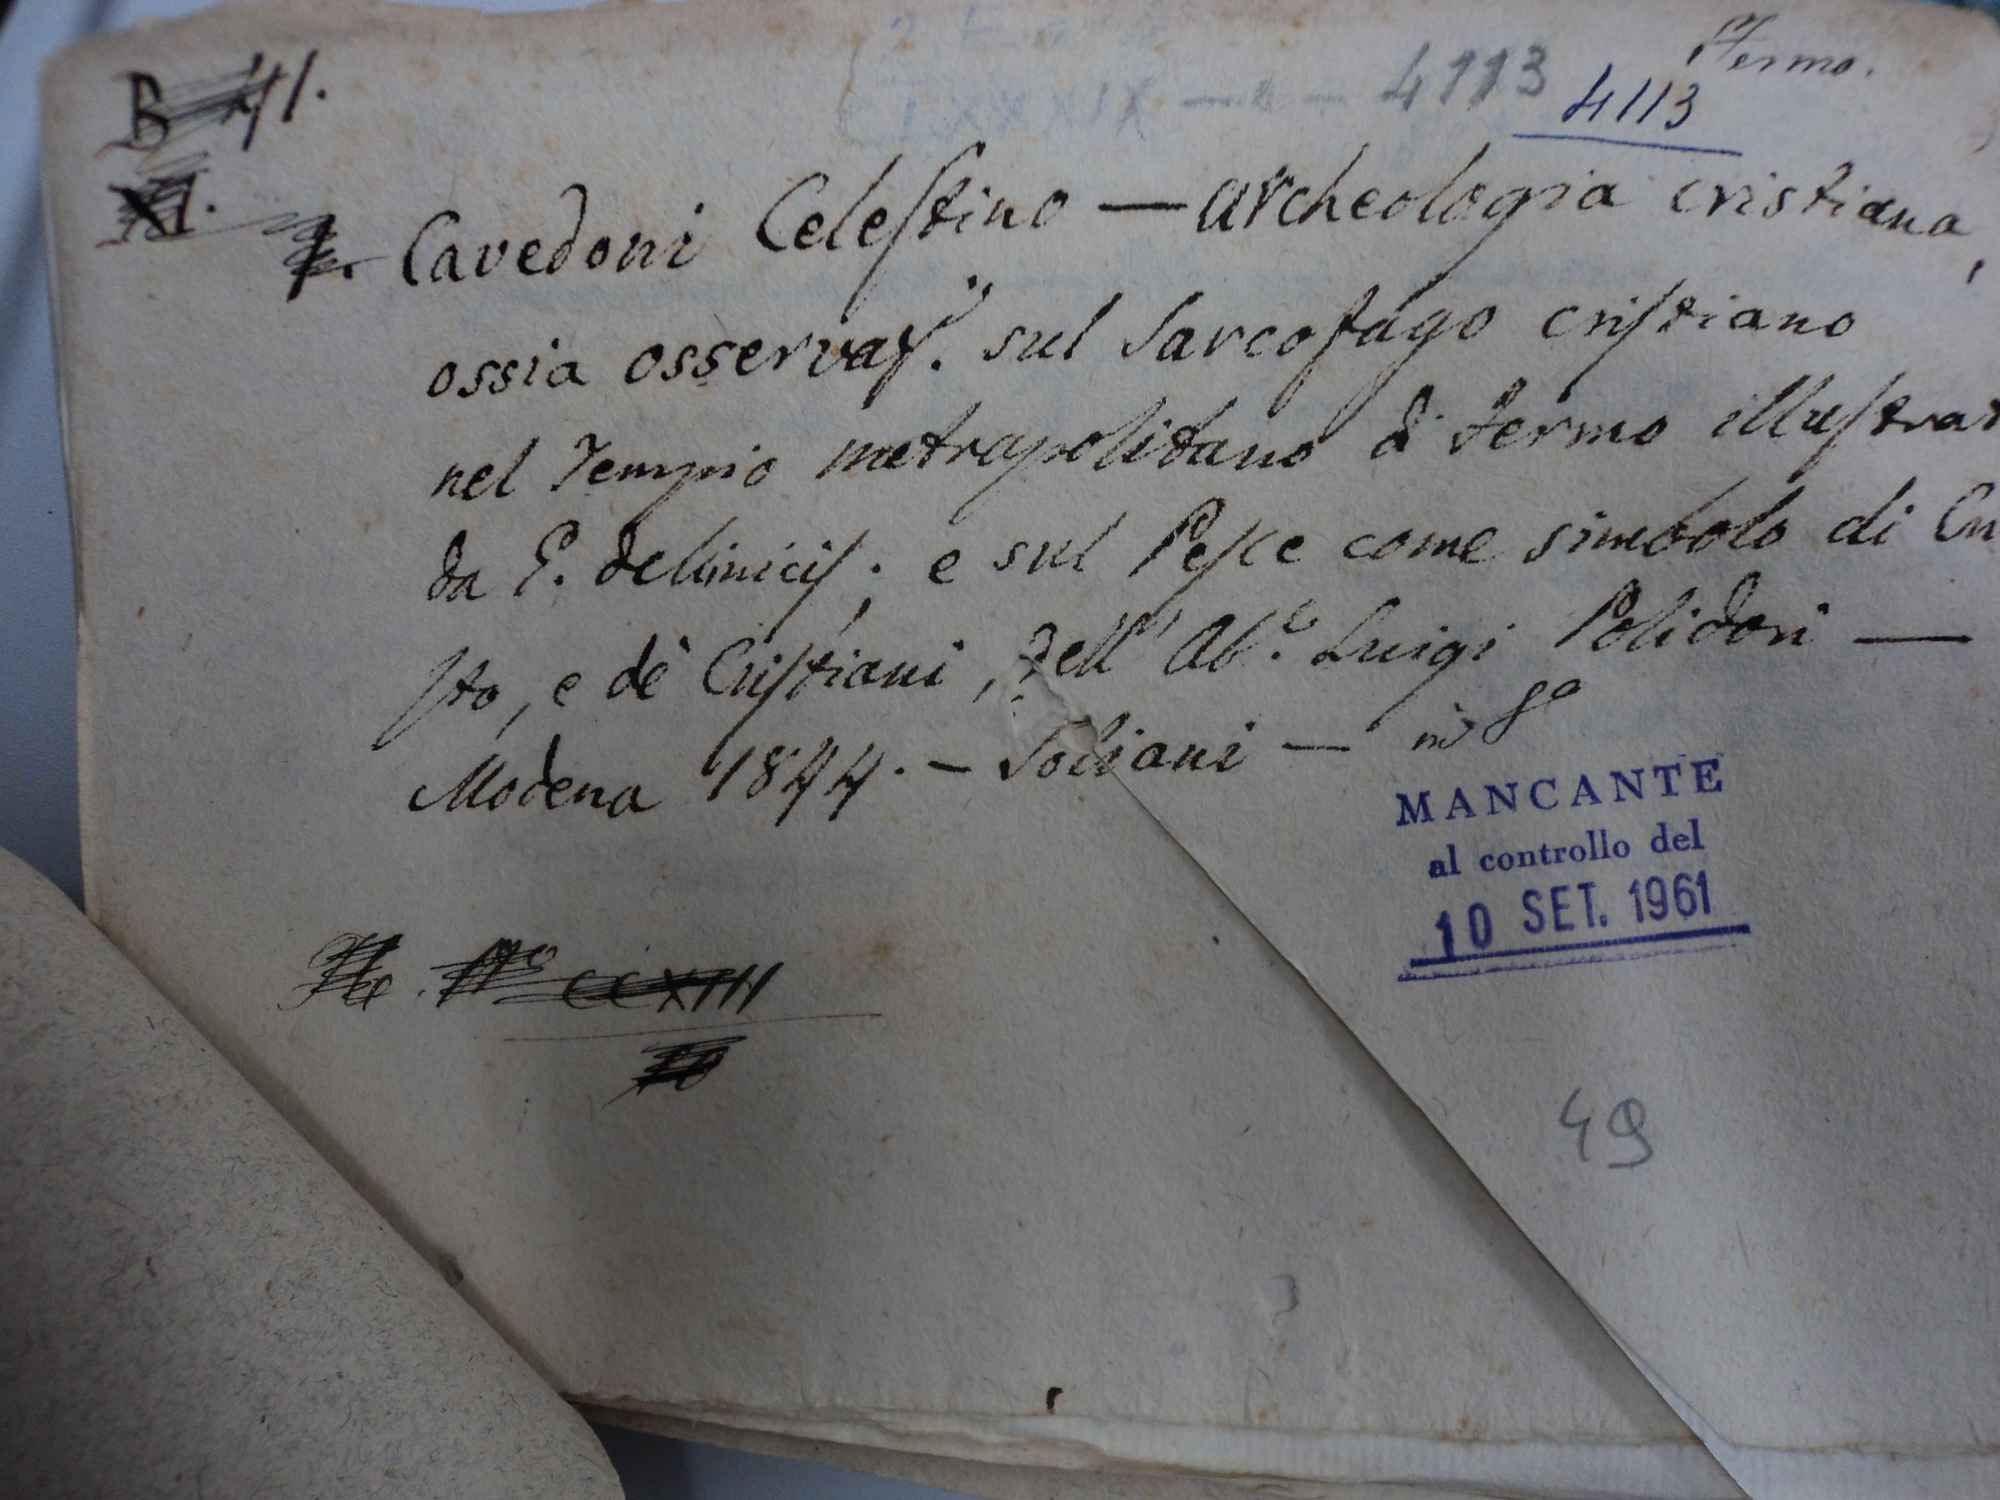 Fermo.
4113
LXXXIX — 4113
B
XI.
Cavedoni Celestino — Archeologia cristiana,
ossia osservaz.ⁱ sul Sarcofago cristiano
nel Tempio metropolitano di Fermo illustrat
da E. de Minicis; e sul Pesce come simbolo di Cri
sto, e de' Cristiani, dell' Ab.ᵉ Luigi Polidori —
Modena 1844. — Soliani — in 8º
MANCANTE
al controllo del
10 SET. 1961
Nº CCXIII
49